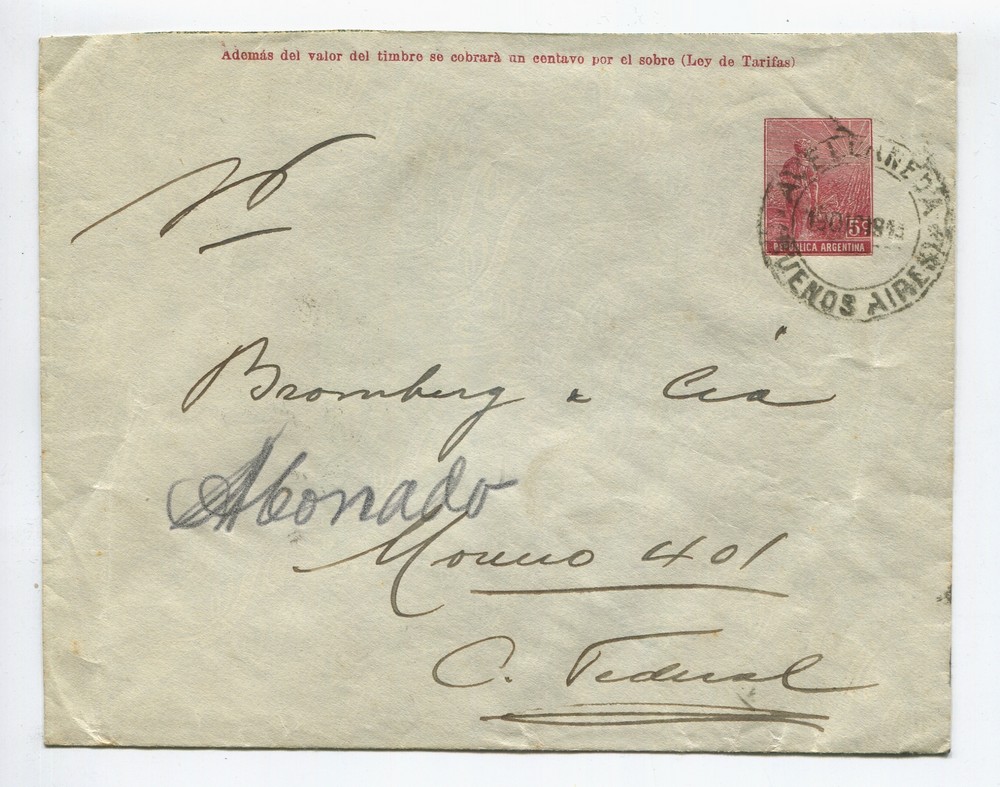 Además del valor del timbre se cobrarà un centavo por el sobre (Ley de Tarifas)
5c
REPÚBLICA ARGENTINA
AVELLANEDA
BUENOS AIRES
Bromberg & Cía
Abonado
Moreno 401
C. Federal